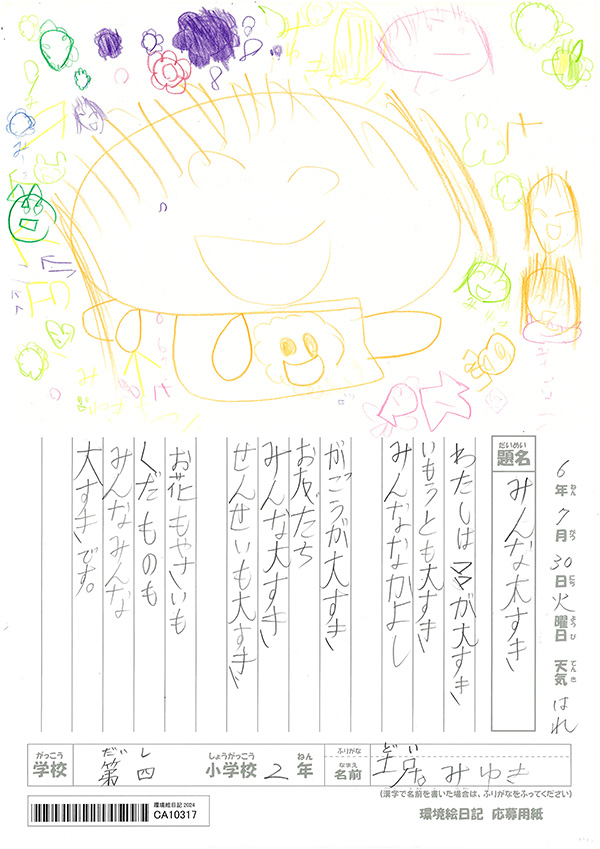 6年7月30日火曜日 天気 はれ
ねん がつ にち ようび てんき
だいめい
題名 みんな大すき
わたしはママが大すき
いもうとも大すき
みんななかよし
がっこうが大すき
お友だち
みんな大すき
せんせいも大すき
お花もやさいも
くだものも
みんなみんな
大すきです。
がっこう だい し しょうがっこう ねん ふりがな どい
学校 第四 小学校 2年 なまえ 名前 みゆき
(漢字で名前を書いた場合は、ふりがなをふってください)
環境絵日記 2024
CA10317
環境絵日記 応募用紙